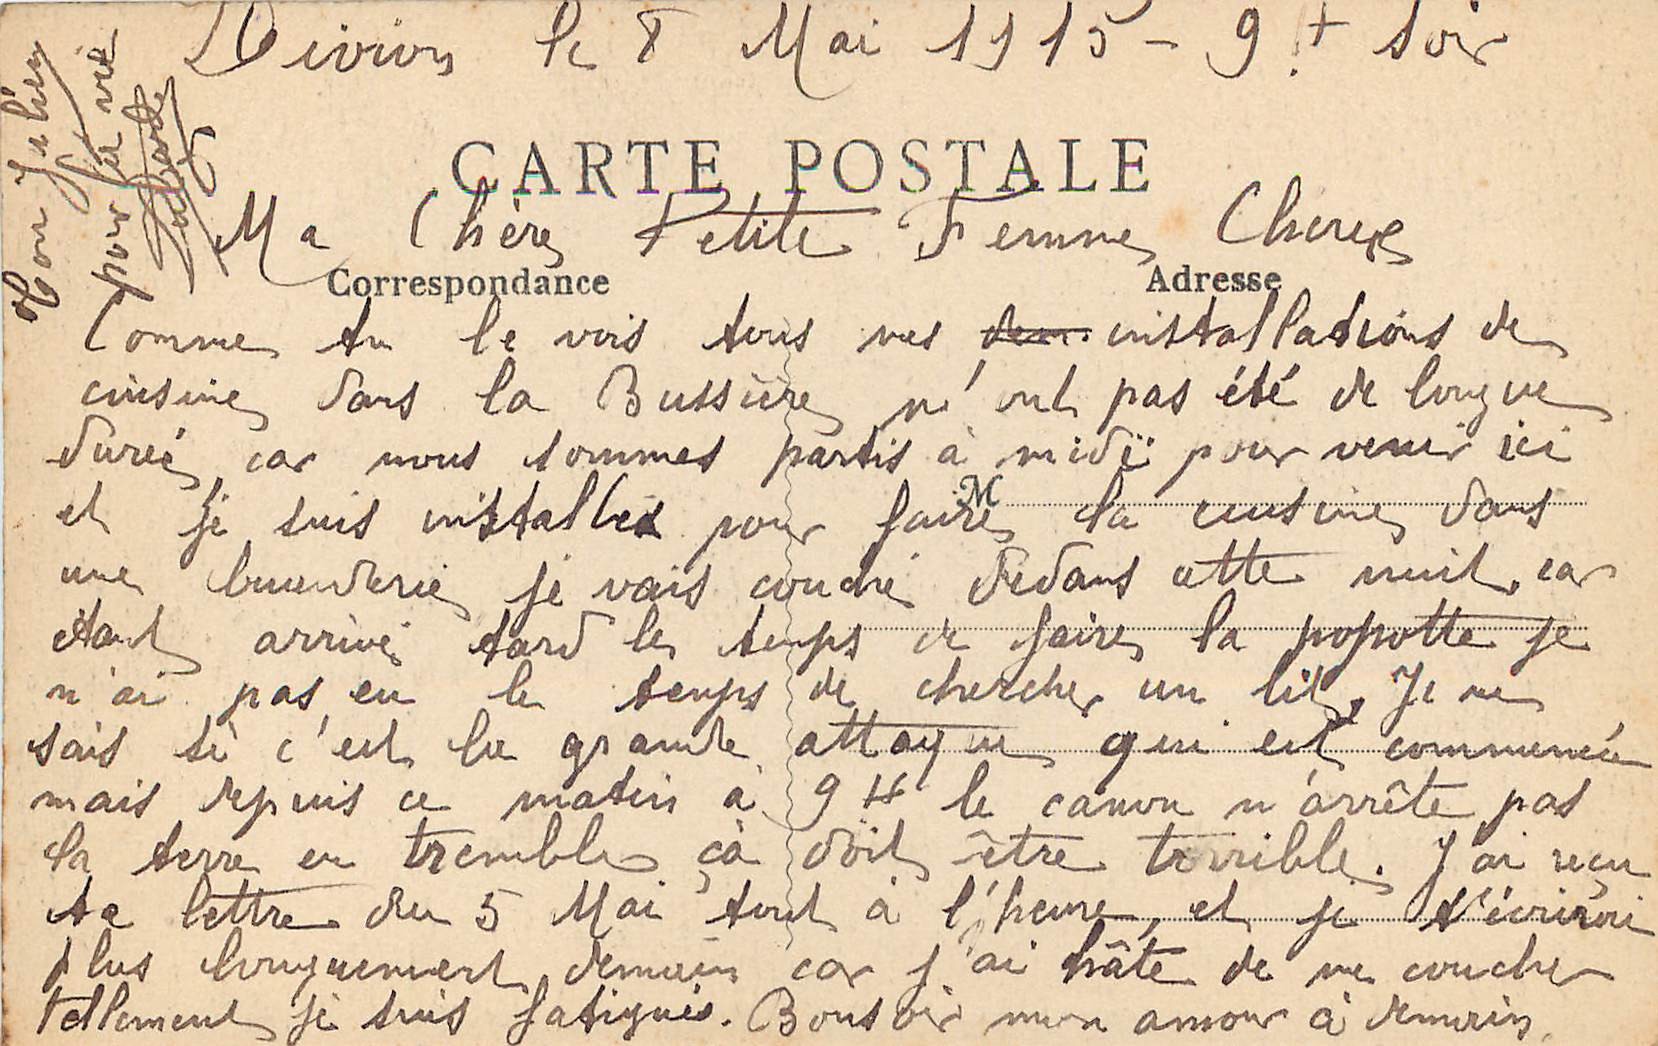 Divion le 8 Mai 1915 - 9 H soir
CARTE POSTALE
Ma Chère Petite Femme Cheree
Correspondance Adresse
Comme tu le vois tous mes installations de
cuisine dans la Bussière n'ont pas été de longue
dureé car nous sommes partis à midi pour venir ici
M
et je suis installé pour faire la cuisine dans
une buanderie je vais couché dedans cette nuit, car
étant arrivé tard le temps de faire la popotte je
n'ai pas eu le temps de chercher un lit, Je ne
sais si c'est la grande attaque qui est commencée
mais depuis ce matin à 9 H le canon n'arrête pas
la terre en tremble çà doit être terrible. J'ai reçu
ta lettre du 5 Mai tout à l'heure, et je t'écrirai
plus longuement demain car j'ai hâte de me coucher
tellement je suis fatigué. Bonsoir mon amour à demain.
Ton Julien
pour la vie